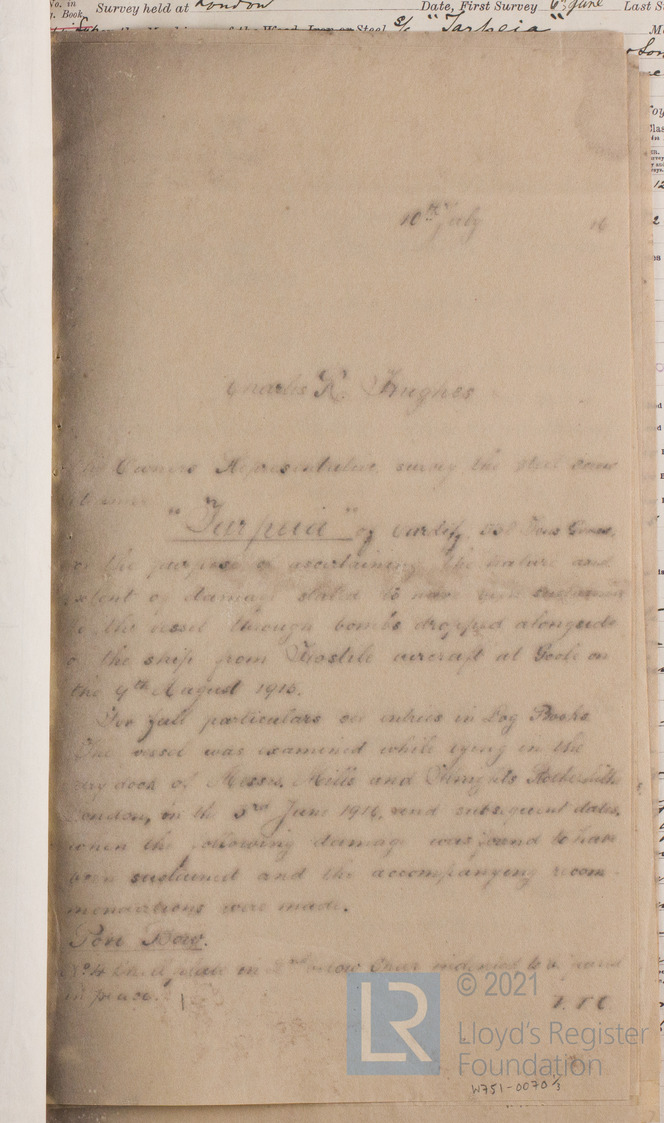 Survey held at London
Date, First Survey 6th June
Last S
Book
"Tarpeia"
10th July 16
Charles R. Hughes
Owners Representative, survey the steel screw
"Tarpeia" of Cardiff, Tons Gross,
for the purpose of ascertaining the nature and
extent of damage stated to have been sustained
the vessel through bombs dropped alongside
the ship from Hostile aircraft at Goole on
the 9th August 1915.
For full particulars see entries in Log Books
The vessel was examined while lying in the
dry dock of Messrs. Mills and Knights Rotherhithe
London, on the 3rd June 1916, and subsequent dates,
when the following damage was found to have
been sustained and the accompanying recom-
mendations were made.
Port Bow.
plate in 2nd below indented to be faired
in place.
© 2021
LR
Lloyd's Register
Foundation
W751-0070 1/3